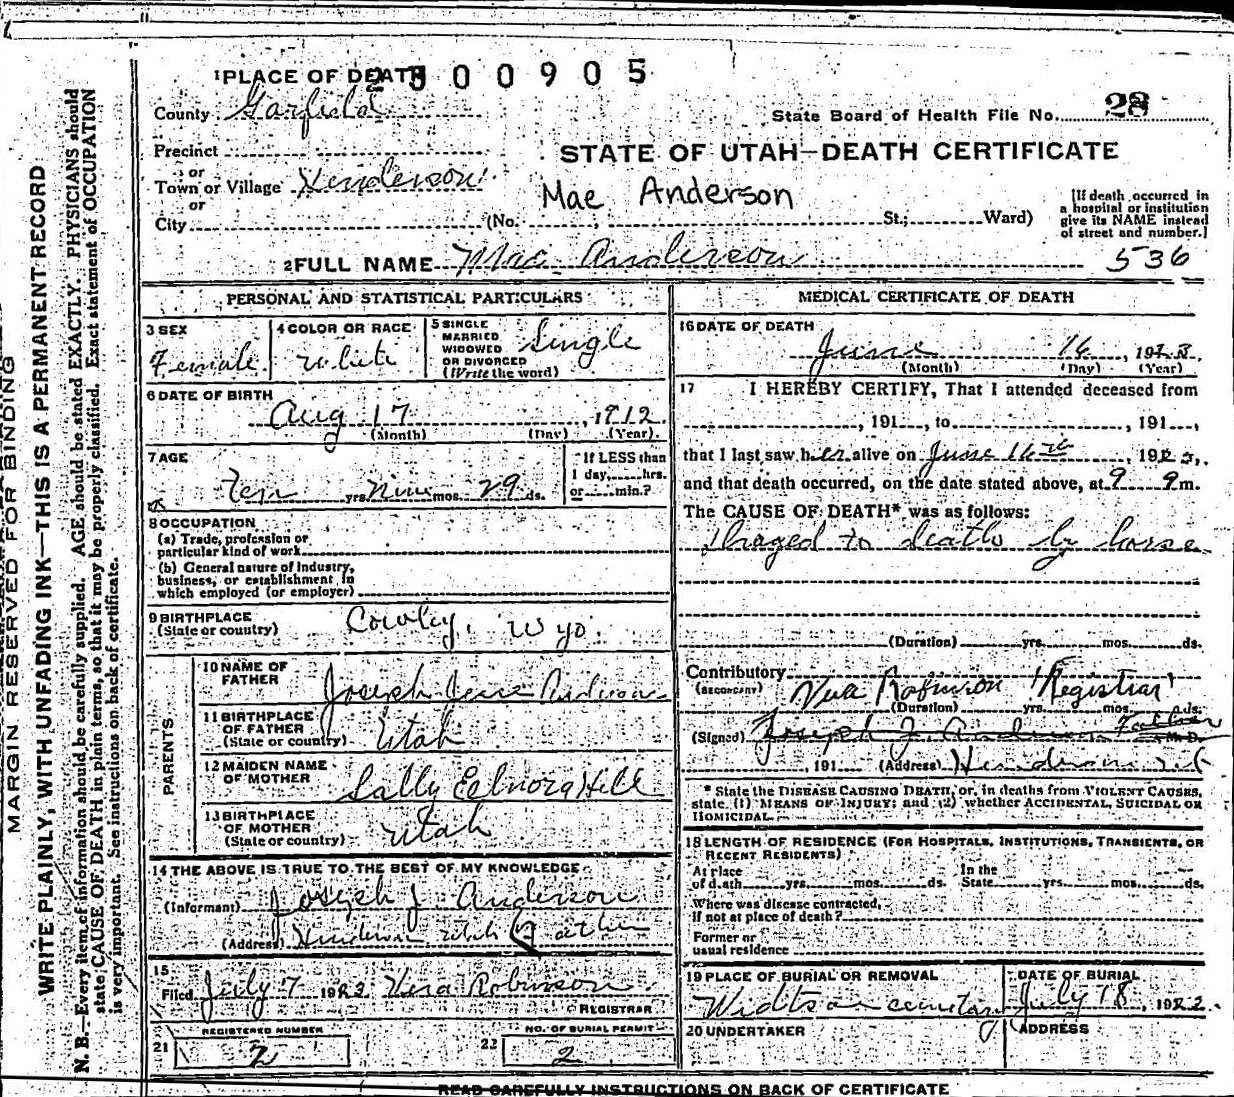 1 PLACE OF DEATH
2 300905
County Garfield
State Board of Health File No. 28
Precinct
or
STATE OF UTAH—DEATH CERTIFICATE
Town or Village Henderson
or
Mae Anderson
City (No. , St.; Ward)
[If death occurred in
a hospital or institution
give its NAME instead
of street and number.]
2 FULL NAME Mae Anderson
536
PERSONAL AND STATISTICAL PARTICULARS
3 SEX
Female
4 COLOR OR RACE
white
5 SINGLE
MARRIED
WIDOWED
OR DIVORCED
(Write the word)
Single
6 DATE OF BIRTH
Aug 17, 1912
(Month) (Day) (Year)
7 AGE
Ten yrs. Nine mos. 29 ds.
If LESS than
1 day, hrs.
or min.?
8 OCCUPATION
(a) Trade, profession or
particular kind of work
(b) General nature of industry,
business, or establishment in
which employed (or employer)
9 BIRTHPLACE
(State or country)
Cowley, Wyo.
PARENTS
10 NAME OF
FATHER
Joseph Anderson
11 BIRTHPLACE
OF FATHER
(State or country)
Utah
12 MAIDEN NAME
OF MOTHER
Sally Hill
13 BIRTHPLACE
OF MOTHER
(State or country)
Utah
14 THE ABOVE IS TRUE TO THE BEST OF MY KNOWLEDGE
(Informant) Joseph J Anderson
(Address) Henderson Utah Father
15
Filed July 7 1923 Vera Robinson
REGISTRAR
21
REGISTERED NUMBER
2
22
NO. OF BURIAL PERMIT
2
MEDICAL CERTIFICATE OF DEATH
16 DATE OF DEATH
June 16, 1923
(Month) (Day) (Year)
17 I HEREBY CERTIFY, That I attended deceased from
, 191 , to , 191 ,
that I last saw her alive on June 16th, 1923,
and that death occurred, on the date stated above, at 9 m.
The CAUSE OF DEATH* was as follows:
Draged to death by horse
(Duration) yrs. mos. ds.
Contributory
(SECONDARY)
Vera Robinson "Registrar"
(Duration) yrs. mos. ds.
(Signed) Joseph J. Anderson Father M. D.
, 191 (Address) Henderson Ut
* State the DISEASE CAUSING DEATH, or, in deaths from VIOLENT CAUSES,
state (1) MEANS OF INJURY; and (2) whether ACCIDENTAL, SUICIDAL OR
HOMICIDAL.
18 LENGTH OF RESIDENCE (FOR HOSPITALS, INSTITUTIONS, TRANSIENTS, OR
RECENT RESIDENTS)
At place
of death yrs. mos. ds.
In the
State yrs. mos. ds.
Where was disease contracted,
if not at place of death?
Former or
usual residence
19 PLACE OF BURIAL OR REMOVAL
Widtsoe cemetary
DATE OF BURIAL
July 18, 1922
20 UNDERTAKER
ADDRESS
READ CAREFULLY INSTRUCTIONS ON BACK OF CERTIFICATE
MARGIN RESERVED FOR BINDING
WRITE PLAINLY, WITH UNFADING INK—THIS IS A PERMANENT RECORD
N. B.—Every item of information should be carefully supplied. AGE should be stated EXACTLY. PHYSICIANS should
state CAUSE OF DEATH in plain terms, so that it may be properly classified. Exact statement of OCCUPATION
is very important. See instructions on back of certificate.